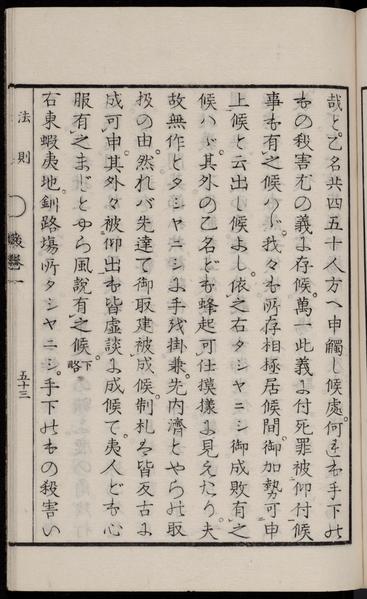 哉と。乙名共四五十人方へ申觸し候處。何きも手下此
もの殺害尤の義ふ存候。萬一此義ふ付死罪被仰付候
事も有之候ハゞ。我々も所存相極居候間。御加勢可申
上候と云出し候よし。依之右タシヤニシ御成敗有之
候ハゞ。其外の乙名ども蜂起可仕摸樣ふ見えたり。夫
故無作とタシヤニシふ手残掛兼。先内濟とやら此取
扱の由。然れバ先達て御取建被成候。制札も皆反古ふ
成可申。其外々被仰出も皆虚談ふ成候て。夷人ども心
服有之まじとやら風說有之候。下略
右東蝦夷地。釧路塲所タシヤニシ。手下此もの殺害い
法則
五十三